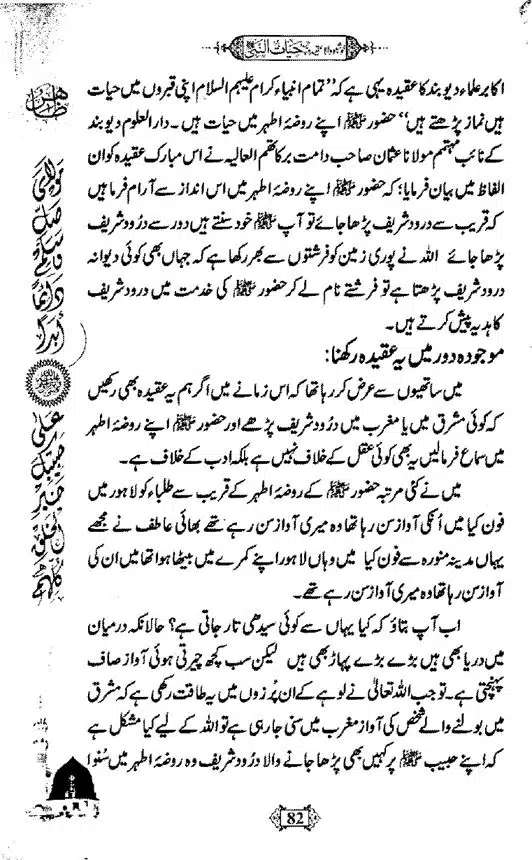 حیات النبی ﷺ
اکابر علماء دیوبند کا عقیدہ یہی ہے کہ ”تمام انبیاء کرام علیہم السلام اپنی قبروں میں حیات
ہیں نماز پڑھتے ہیں“ حضور ﷺ اپنے روضۂ اطہر میں حیات ہیں۔ دارالعلوم دیوبند
کے نائب مہتمم مولانا عثمان صاحب دامت برکاتھم العالیہ نے اس مبارک عقیدہ کو ان
الفاظ میں بیان فرمایا؛ کہ حضور ﷺ اپنے روضۂ اطہر میں اس انداز سے آرام فرما ہیں
کہ قریب سے درود شریف پڑھا جائے تو آپ ﷺ خود سنتے ہیں دور سے درُود شریف
پڑھا جائے اللہ نے پوری زمین کو فرشتوں سے بھر رکھا ہے کہ جہاں بھی کوئی دیوانہ
درود شریف پڑھتا ہے تو فرشتے نام لے کر حضور ﷺ کی خدمت میں درود شریف
کا ہدیہ پیش کرتے ہیں۔
موجودہ دور میں یہ عقیدہ رکھنا:
میں ساتھیوں سے عرض کر رہا تھا کہ اس زمانے میں اگر ہم یہ عقیدہ بھی رکھیں
کہ کوئی مشرق میں یا مغرب میں درُود شریف پڑھے اور حضور ﷺ اپنے روضۂ اطہر
میں سماع فرمالیں یہ بھی کوئی عقل کے خلاف نہیں ہے بلکہ ادب کے خلاف ہے۔
میں نے کئی مرتبہ حضور ﷺ کے روضۂ اطہر کے قریب سے طلباء کو لاہور میں
فون کیا میں اُنکی آواز سن رہا تھا وہ میری آواز سن رہے تھے بھائی عاطف نے مجھے
یہاں مدینہ منورہ سے فون کیا میں وہاں لاہور اپنے کمرے میں بیٹھا ہوا تھا میں ان کی
آواز سن رہا تھا وہ میری آواز سن رہے تھے۔
اب آپ بتاؤ کہ کیا یہاں سے کوئی سیدھی تار جاتی ہے؟ حالانکہ درمیان
میں دریا بھی ہیں بڑے بڑے پہاڑ بھی ہیں لیکن سب کچھ چیرتی ہوئی آواز صاف
پہنچتی ہے۔ تو جب اللہ تعالیٰ نے لوہے کے ان پُرزوں میں یہ طاقت رکھی ہے کہ مشرق
میں بولنے والے شخص کی آواز مغرب میں سنی جا رہی ہے تو اللہ کے لیے کیا مشکل ہے
کہ اپنے حبیب ﷺ پر کہیں بھی پڑھا جانے والا درُود شریف وہ روضۂ اطہر میں سُنوا
82
مولای صل وسلم دائما ابدا
علی حبیبک خیر الخلق کلھم